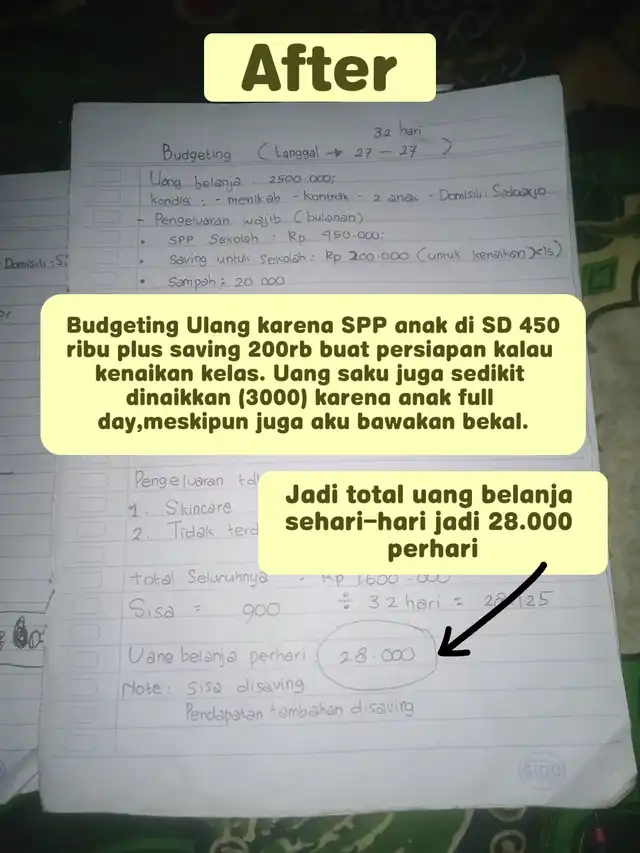 After
32 hari
Budgeting (tanggal → 27 - 27 )
Uang belanja : 2500.000;
kondisi : - menikah - kontrak - 2 anak - Domisili Sidoarjo
- Pengeluaran wajib (bulanan)
• SPP Sekolah : Rp 450.000;
• Saving untuk Sekolah : Rp 200.000 (untuk kenaikan kls)
• Sampah : 20.000
Domisili : Si
Budgeting Ulang karena SPP anak di SD 450
ribu plus saving 200rb buat persiapan kalau
kenaikan kelas. Uang saku juga sedikit
dinaikkan (3000) karena anak full
day,meskipun juga aku bawakan bekal.
Pengeluaran
1. Skincare
2. Tidak
Jadi total uang belanja
sehari-hari jadi 28.000
perhari
total Seluruhnya : Rp 1600.000
Sisa = 900 ÷ 32 hari = 28.125
Uang belanja perhari : 28.000
Note : Sisa disaving
Pendapatan tambahan disaving
SIDU